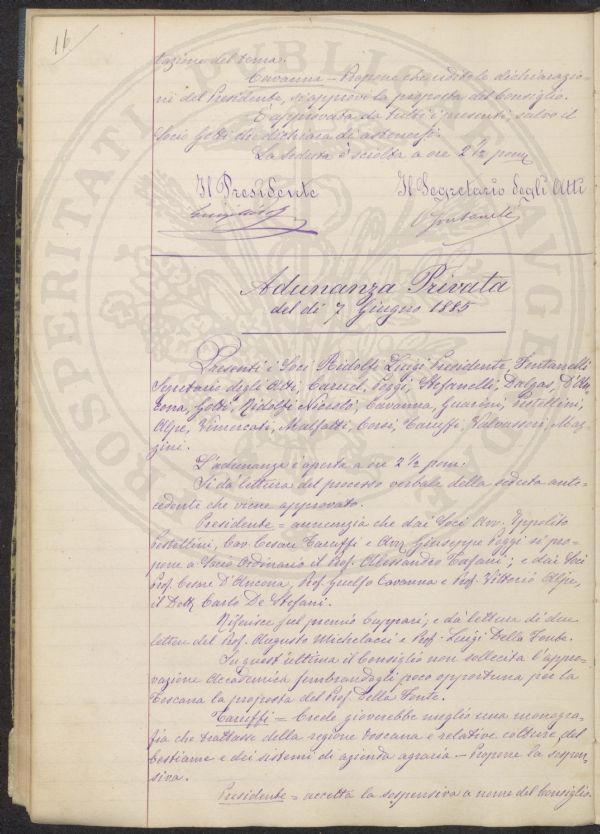 16
tazione del tema.
Cavanna – Propone che udite le dichiarazio-
ni del Presidente, si approvi la proposta del Consiglio.
È approvata da tutti i presenti, salvo il
Socio Gotti che dichiara di astenersi.
La seduta è sciolta a ore 2 1/2 pom.
Il Presidente Il Segretario degli Atti
Adunanza Privata
del dì 7 Giugno 1885
Presenti i Soci Ridolfi Luigi Presidente, Fontanelli
Segretario degli Atti, Caruel, Poggi, Stefanelli, Dalgas, D'An-
cona, Gotti, Ridolfi Niccolò, Cavanna, Guarini, Pestellini,
Alpe, Vimercati, Malfatti, Corsi, Taruffi, Valvassori, Maz-
zini.
L'adunanza è aperta a ore 2 1/2 pom:
Si dà lettura del processo verbale della seduta ante-
cedente che viene approvato.
Presidente = annunzia che dai Soci Avv. Ippolito
Pestellini, Cav. Cesare Taruffi e Avv. Giuseppe Poggi si pro-
pone a Socio Ordinario il Prof. Alessandro Tafani; e dai Soci
Prof. Cesare D'Ancona, Prof. Guelfo Cavanna e Prof. Vittorio Alpe,
il Dott. Carlo De Stefani.
Riferisce sul premio Cuppari; e dà lettura di due
lettere del Prof. Augusto Michelacci e Prof. Luigi Della Fonte.
In quest'ultima il Consiglio non sollecita l'appro-
vazione Accademica sembrandogli poco opportuna per la
Toscana la proposta del Prof. Della Fonte.
Taruffi = Crede gioverebbe meglio una monogra-
fia che trattasse della regione toscana e relative colture del
bestiame e dei sistemi di azienda agraria. – Propone la sospen-
siva.
Presidente = accetta la sospensiva a nome del Consiglio.
PROSPERITATI PUBLICAE AUGENDAE